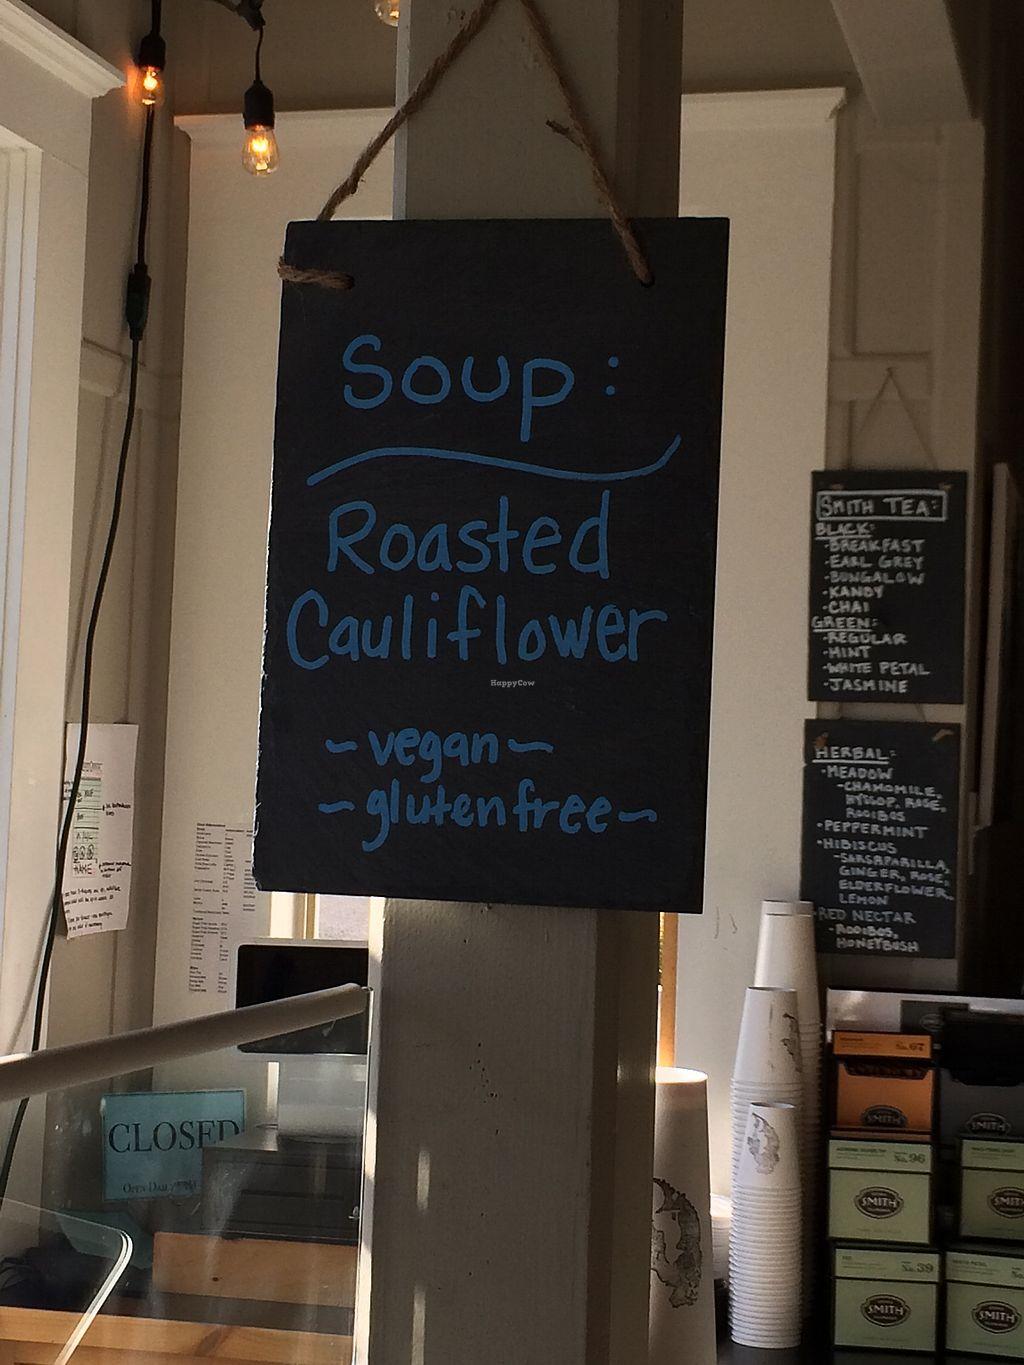 Soup:
Roasted
Cauliflower
~vegan~
~gluten free~
HappyCow
SMITH TEA:
BLACK:
·BREAKFAST
·EARL GREY
·BUNGALOW
·KANDY
·CHAI
GREEN:
·REGULAR
·MINT
·WHITE PETAL
·JASMINE
HERBAL:
·MEADOW
-CHAMOMILE,
HYSSOP, ROSE,
ROOIBOS
·PEPPERMINT
·HIBISCUS
-SARSAPARILLA,
GINGER, ROSE,
ELDERFLOWER,
LEMON
·RED NECTAR
-ROOIBOS,
HONEYBUSH
NAME
CLOSED
OPEN DAILY
No. 67
SMITH
SMITH
No. 96
SMITH
SMITH
No. 39
SMITH
SMITH